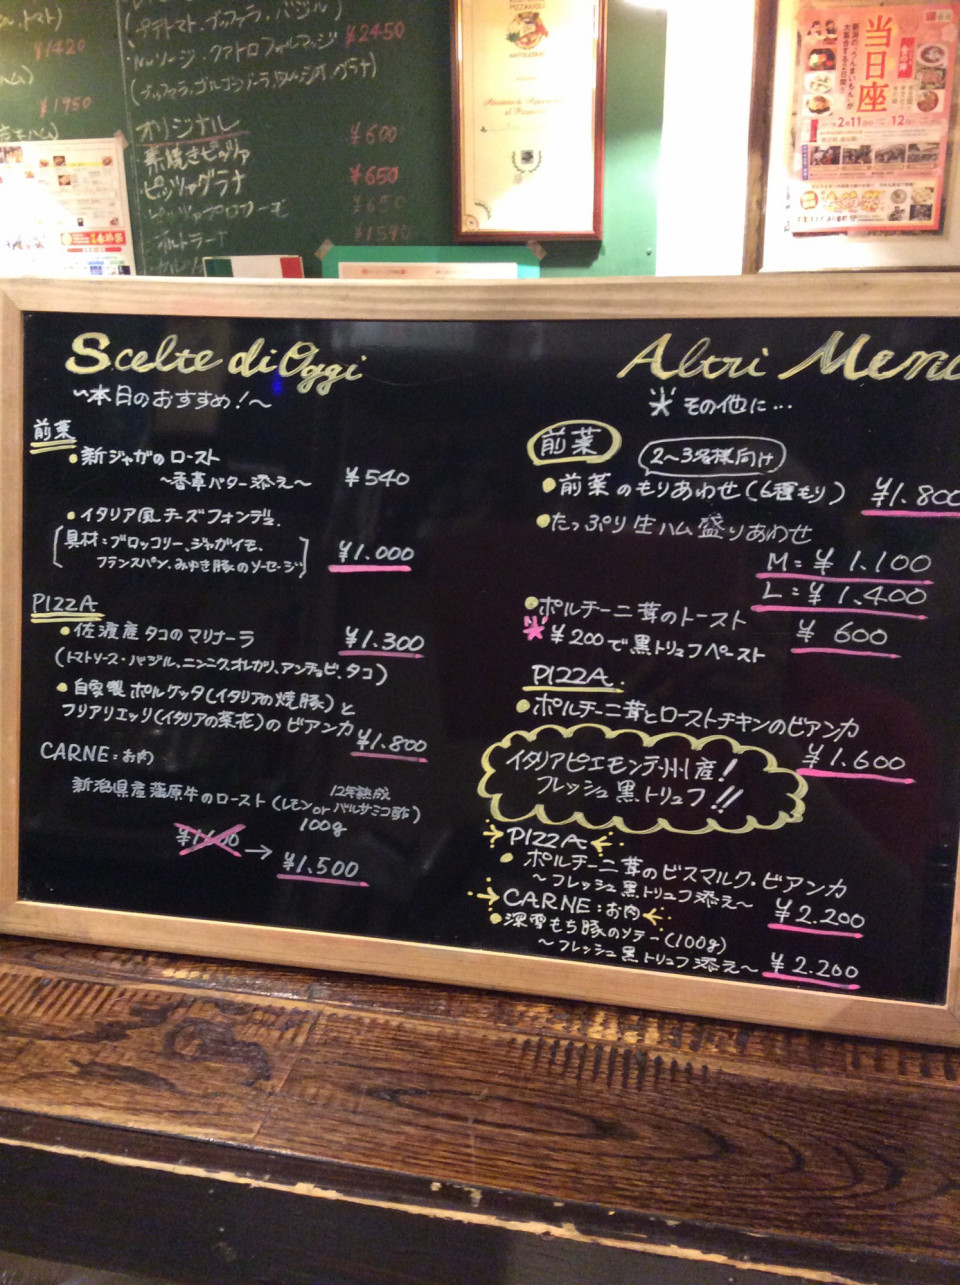 ¥1420
¥1950
(プチトマト・ブッファラ・バジル)
クアトロフォルマッジ ¥2450
オリジナル
素焼きピッツァ ¥600
ピッツァグラナ ¥650
¥650
¥1590
当日座
2月11日
12日
Scelte di Oggi
〜本日のおすすめ!〜
前菜
・新ジャガのロースト
〜香草バター添え〜 ¥540
・イタリア風チーズフォンデュ
[具材:ブロッコリー、ジャガイモ、
フランスパン、みゆき豚のソーセージ] ¥1.000
PIZZA
・佐渡産タコのマリナーラ ¥1.300
(トマトソース・バジル、ニンニク、オレガノ、アンチョビ、タコ)
・自家製ポルケッタ(イタリアの焼豚)と
フリアリエッリ(イタリアの菜花)のビアンカ
¥1.800
CARNE:お肉
新潟県産蒲原牛のロースト(レモンor12年熟成バルサミコ酢)
100g
→ ¥1.500
Altri Menu
* その他に…
前菜 2〜3名様向け
・前菜のもりあわせ(6種もり) ¥1.800
・たっぷり生ハム盛りあわせ
M=¥1.100
L=¥1.400
・ポルチーニ茸のトースト ¥600
*¥200で黒トリュフペースト
PIZZA
・ポルチーニ茸とローストチキンのビアンカ
¥1.600
イタリアピエモンテ州産!
フレッシュ黒トリュフ!!
PIZZA
・ポルチーニ茸のビスマルク・ビアンカ
〜フレッシュ黒トリュフ添え〜 ¥2.200
→CARNE:お肉←
・深雪もち豚のソテー(100g)
〜フレッシュ黒トリュフ添え〜 ¥2.200